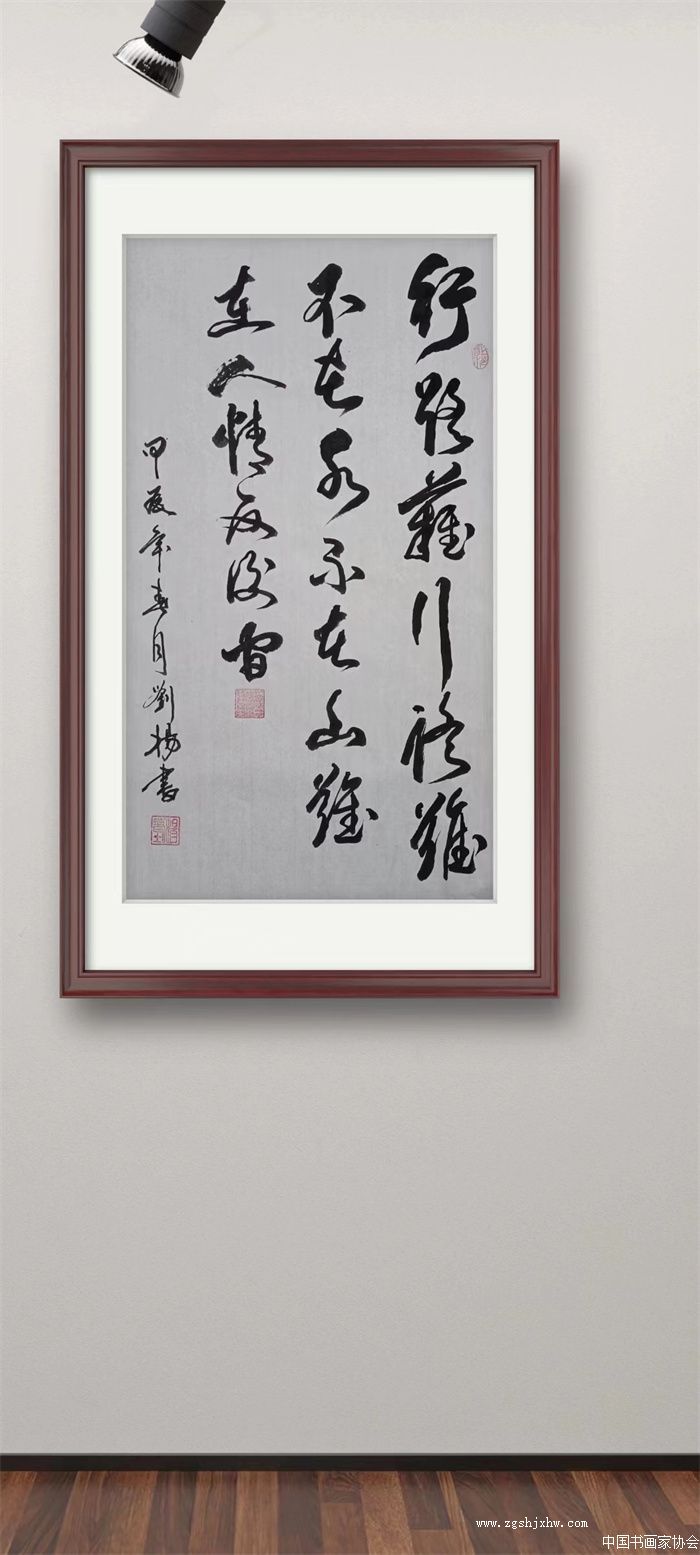 行路難行路難
不在水不在山難
在人情反覆間
甲辰年春月劉楊書
www.zgshjxhw.com
中国书画家协会